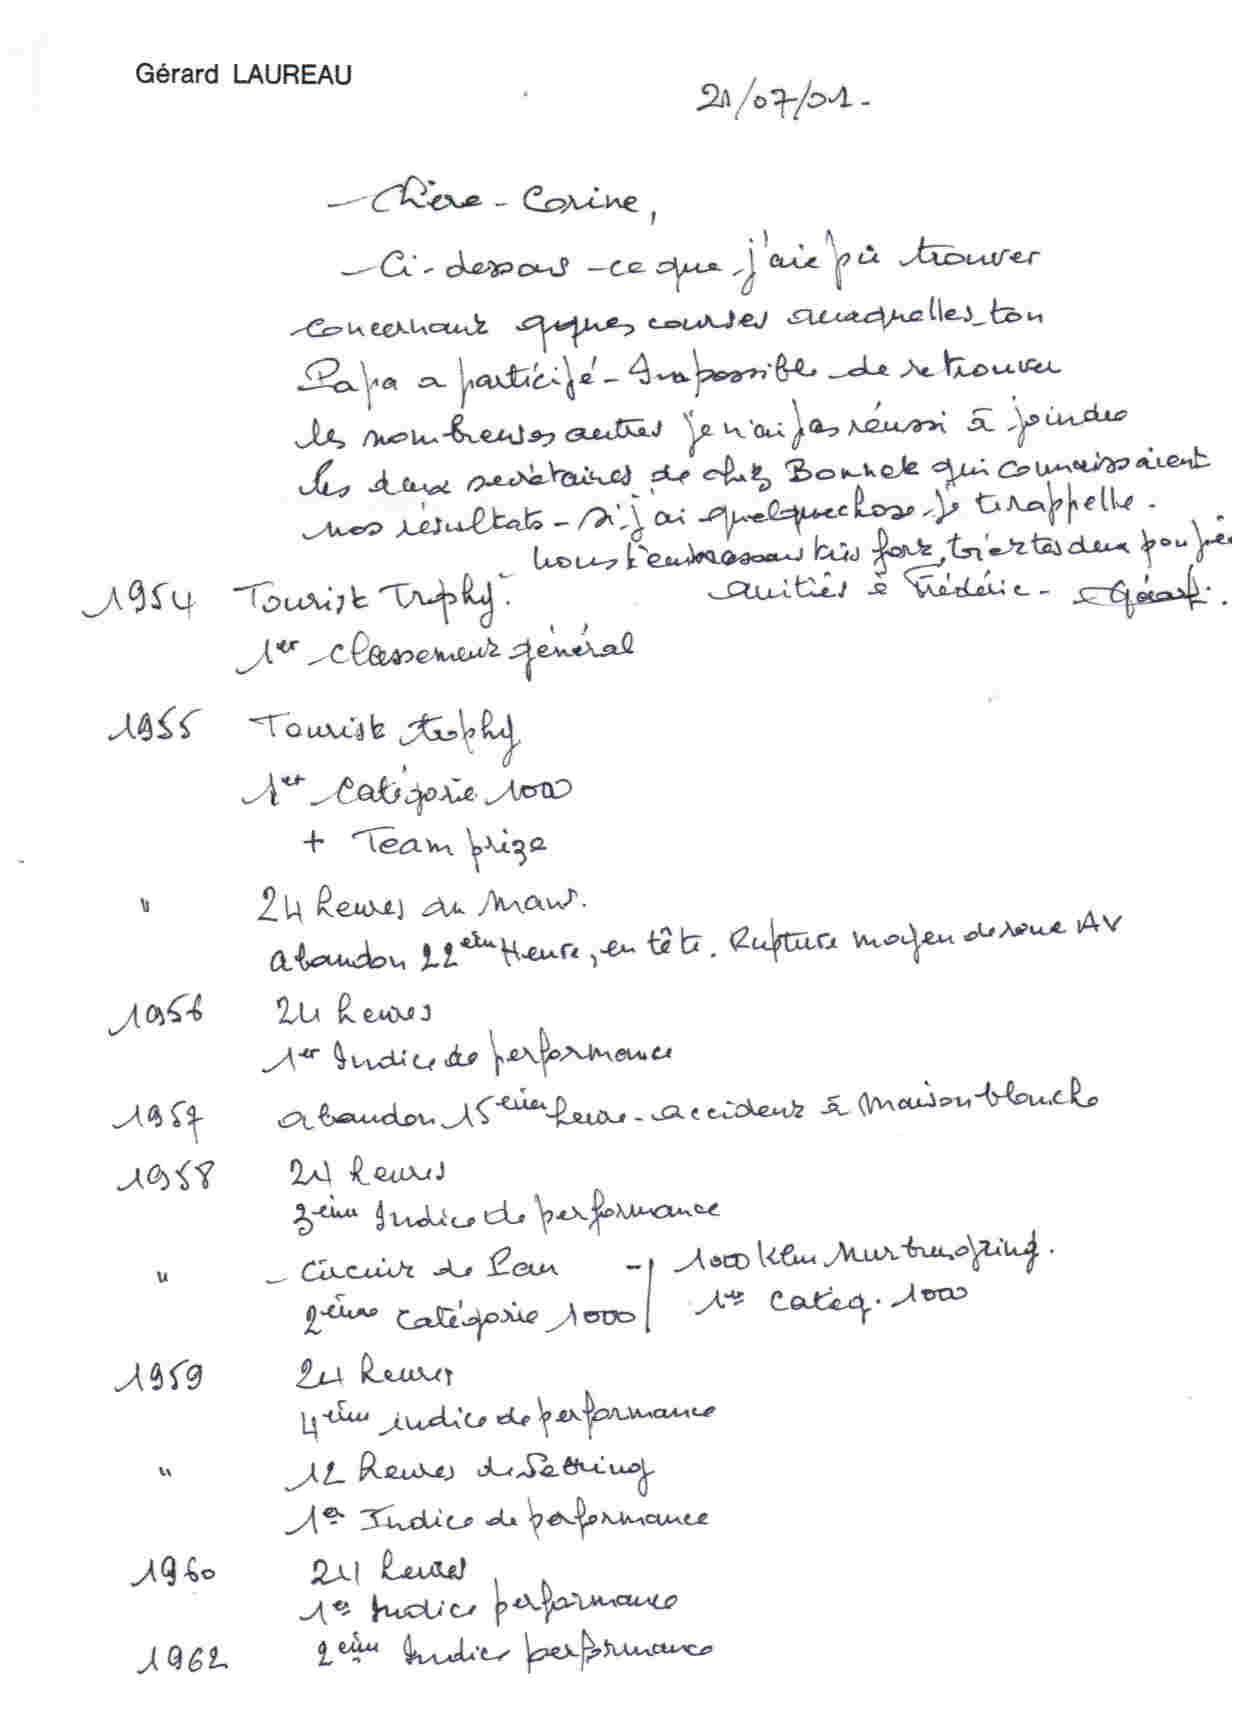 Gérard LAUREAU
21/07/01.
Chère Corine,
Ci-dessous ce que j'aie pû trouver
concernant qques courses auxquelles ton
Papa a participé - Impossible de retrouver
les nombreuses autres je n'ai pas réussi à joindre
les deux secrétaires de chez Bonnet qui connaissaient
nos résultats - si j'ai quelquechose je te rappelle.
nous t'embrassons très fort, toi et tes deux
amitiés à Frédéric - Gérard.
1954 Tourist Trophy.
1er classement général
1955 Tourist trophy
1er Catégorie 1000
+ Team prize
" 24 heures du Mans.
abandon 22ème Heure, en tête. Rupture moyen de roue AV
1956 24 heures
1er Indice de performance
1957 abandon 15ème heure - accident à Maison blanche
1958 24 heures
3ème Indice de performance
" - Circuit de Pau - | 1000 Klm
2ème Catégorie 1000 | 1er Catég. 1000
1959 24 heures
4ème indice de performance
" 12 heures de Sebring
1er Indice de performance
1960 24 heures
1er Indice performance
1962 2ème Indice performance